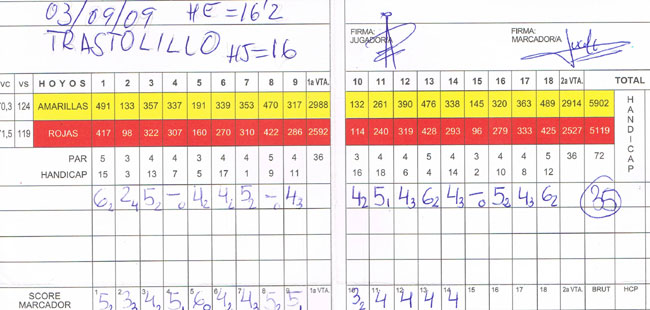 03/09/09 HE=16'2
TRASTOLILLO HJ=16
FIRMA: JUGADOR/A
FIRMA: MARCADOR/A
VC VS HOYOS 1 2 3 4 5 6 7 8 9 1ª VTA. 10 11 12 13 14 15 16 17 18 2ª VTA. TOTAL
70,3 124 AMARILLAS 491 133 357 337 191 339 353 470 317 2988 132 261 390 476 338 145 320 363 489 2914 5902
71,5 119 ROJAS 417 98 322 307 160 270 310 422 286 2592 114 240 319 428 293 96 279 333 425 2527 5119
HANDICAP
PAR 5 3 4 4 3 4 4 5 4 36 3 4 4 5 4 3 4 4 5 36 72
HANDICAP 15 3 13 7 5 17 1 9 11 16 18 6 4 14 2 10 8 12
6₂ 2₄ 5₂ –₀ 4₂ 4₂ 5₂ –₀ 4₃ 4₂ 5₁ 4₃ 6₂ 4₃ –₀ 5₂ 4₃ 6₂ 35
SCORE MARCADOR 1 2 3 4 5 6 7 8 9 1ª VTA. 10 11 12 13 14 15 16 17 18 2ª VTA. BRUT HCP
5₂ 3₃ 4₂ 5₁ 6₀ 4₂ 4₃ 5₂ 5₁ 3₂ 4 4 4 4